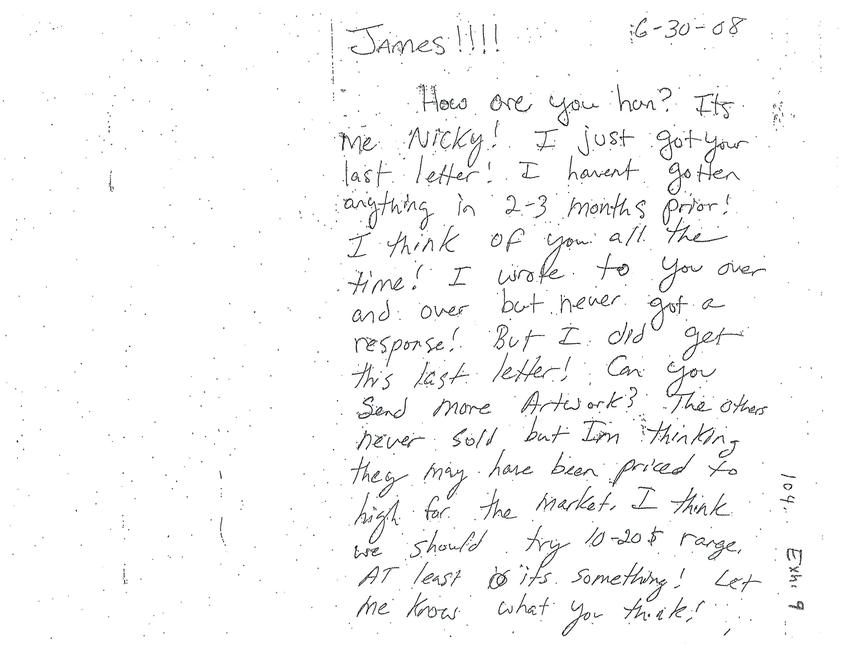 6-30-08
JAMES!!!!
How are you hun? Its
me Nicky! I just got your
last letter! I havent gotten
anything in 2-3 months prior!
I think of you all the
time! I wrote to you over
and over but never got a
response! But I did get
this last letter! Can you
Send more Artwork? The others
never sold but Im thinking
they may have been priced to
high for the market. I think
we should try 10-20$ range.
AT least its something! Let
me know what you think!
104. Exh. 9